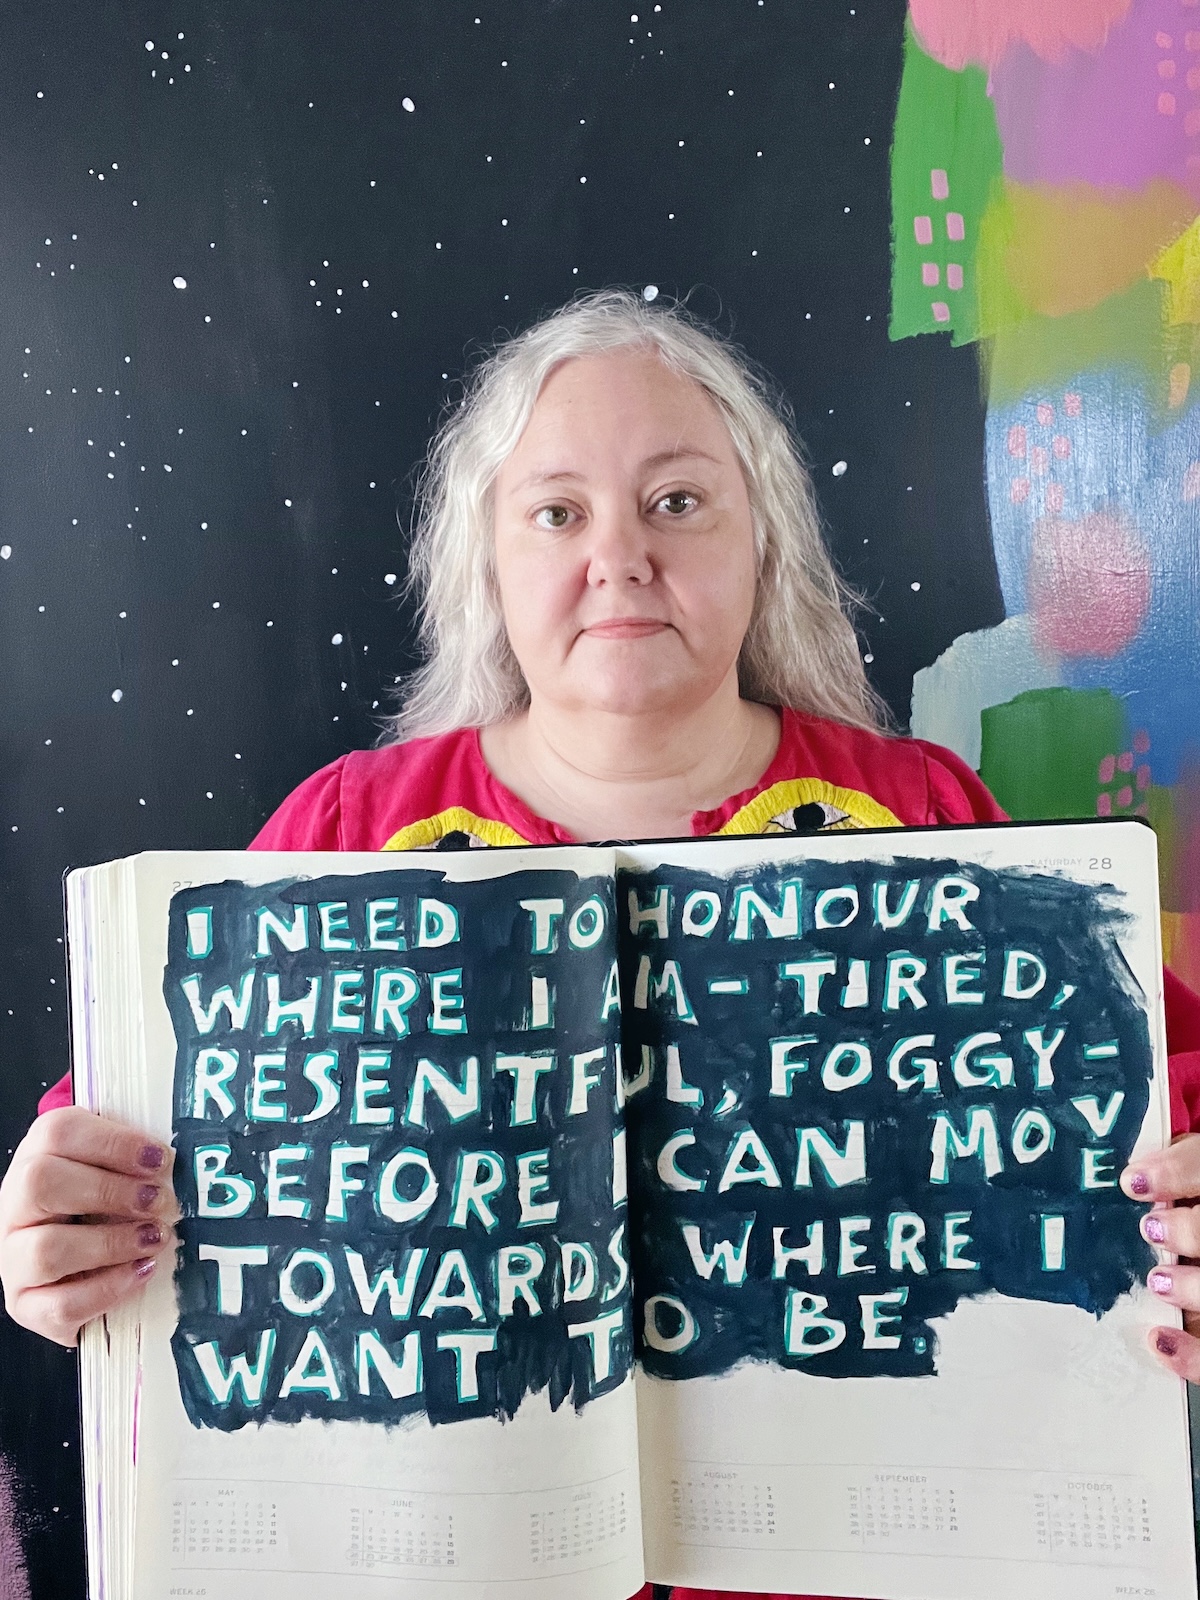 27
SATURDAY 28
I NEED TO HONOUR
WHERE I AM - TIRED,
RESENTFUL, FOGGY -
BEFORE I CAN MOVE
TOWARDS WHERE I
WANT TO BE.
MAY JUNE JULY AUGUST SEPTEMBER OCTOBER
WEEK 26 WEEK 26